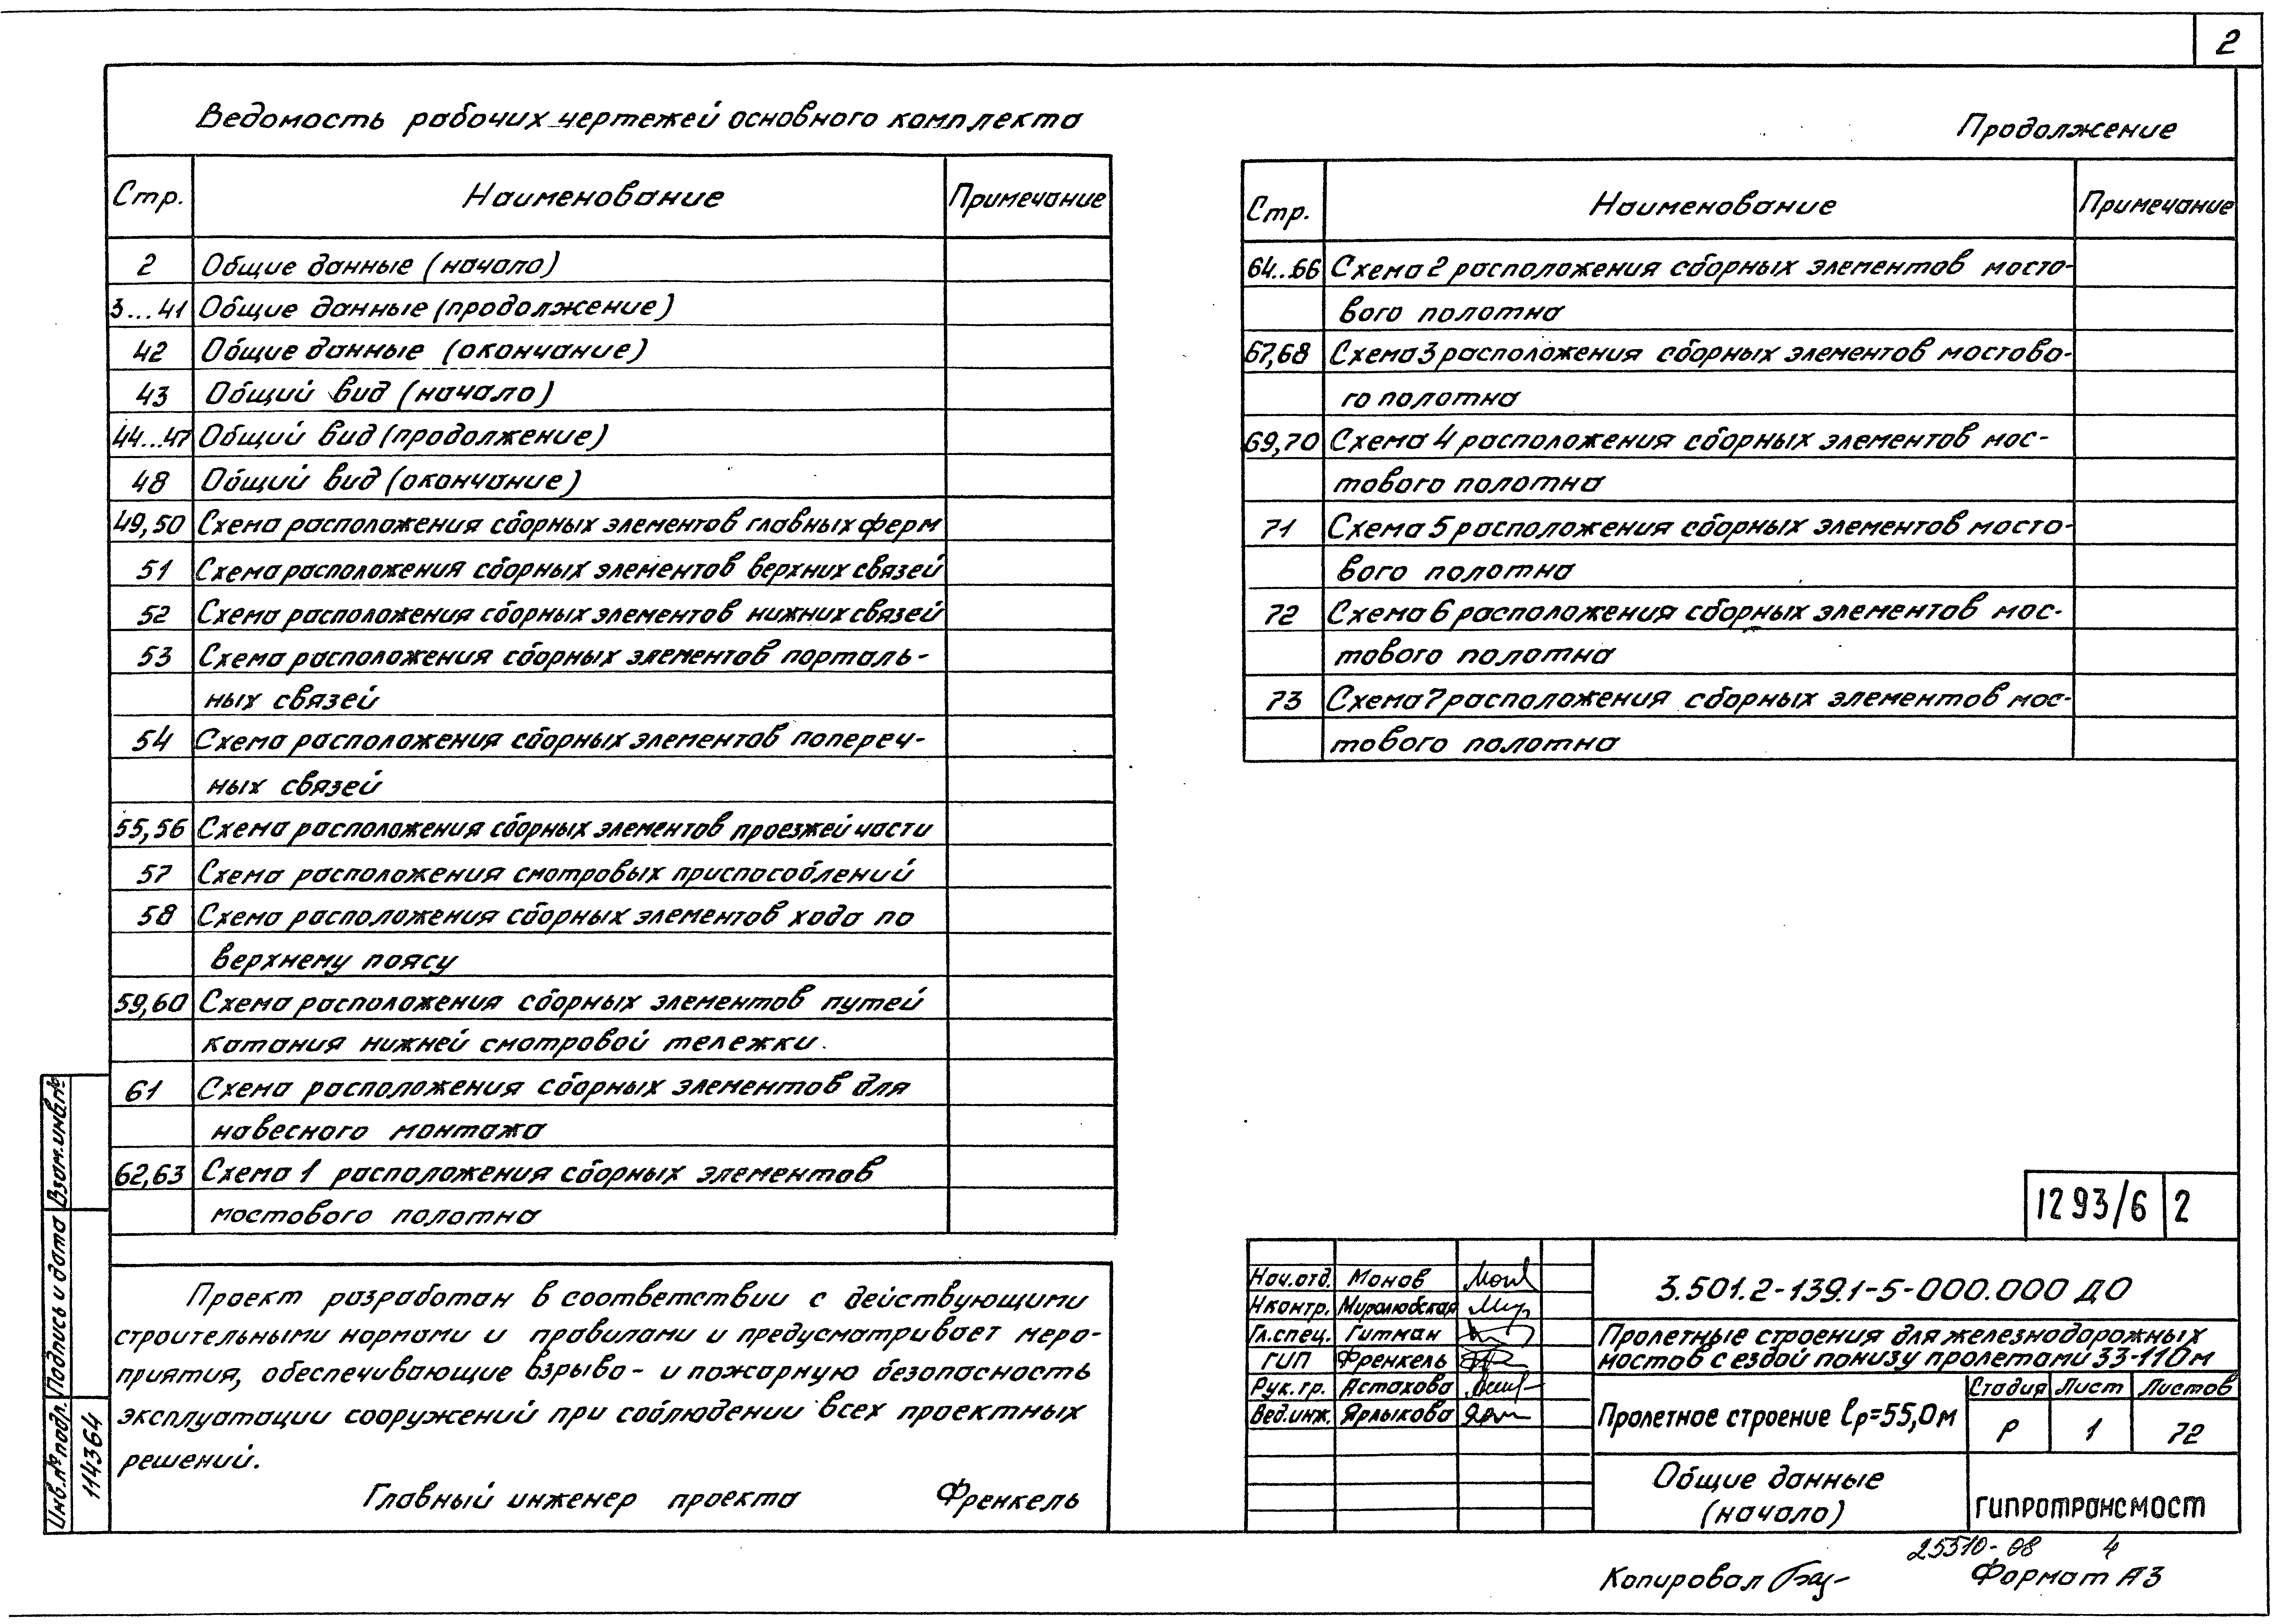 2
Ведомость рабочих чертежей основного комплекта
Стр. Наименование Примечание
2 Общие данные (начало)
3...41 Общие данные (продолжение)
42 Общие данные (окончание)
43 Общий вид (начало)
44...47 Общий вид (продолжение)
48 Общий вид (окончание)
49,50 Схема расположения сборных элементов главных ферм
51 Схема расположения сборных элементов верхних связей
52 Схема расположения сборных элементов нижних связей
53 Схема расположения сборных элементов порталь-
ных связей
54 Схема расположения сборных элементов попереч-
ных связей
55,56 Схема расположения сборных элементов проезжей части
57 Схема расположения смотровых приспособлений
58 Схема расположения сборных элементов хода по
верхнему поясу
59,60 Схема расположения сборных элементов путей
катания нижней смотровой тележки.
61 Схема расположения сборных элементов для
навесного монтажа
62,63 Схема 1 расположения сборных элементов
мостового полотна
Продолжение
Стр. Наименование Примечание
64..66 Схема 2 расположения сборных элементов мосто-
вого полотна
67,68 Схема 3 расположения сборных элементов мостово-
го полотна
69,70 Схема 4 расположения сборных элементов мос-
тового полотна
71 Схема 5 расположения сборных элементов мосто-
вого полотна
72 Схема 6 расположения сборных элементов мос-
тового полотна
73 Схема 7 расположения сборных элементов мос-
тового полотна
Проект разработан в соответствии с действующими
строительными нормами и правилами и предусматривает меро-
приятия, обеспечивающие взрыво- и пожарную безопасность
эксплуатации сооружений при соблюдении всех проектных
решений.
Главный инженер проекта Френкель
Инв.№ подл. Подпись и дата Взам.инв.№
114364
1293/6 2
Нач.отд. Монов
Н.контр. Миролюбская
Гл.спец. Гитман
ГИП Френкель
Рук.гр. Астахова
Вед.инж. Ярлыкова
3.501.2-139.1-5-000.000 ДО
Пролетные строения для железнодорожных
мостов с ездой понизу пролетами 33-110м
Пролетное строение lр=55,0м
Стадия Лист Листов
Р 1 72
Общие данные
(начало)
ГИПРОТРАНСМОСТ
25510-08 4
Копировал Формат А3